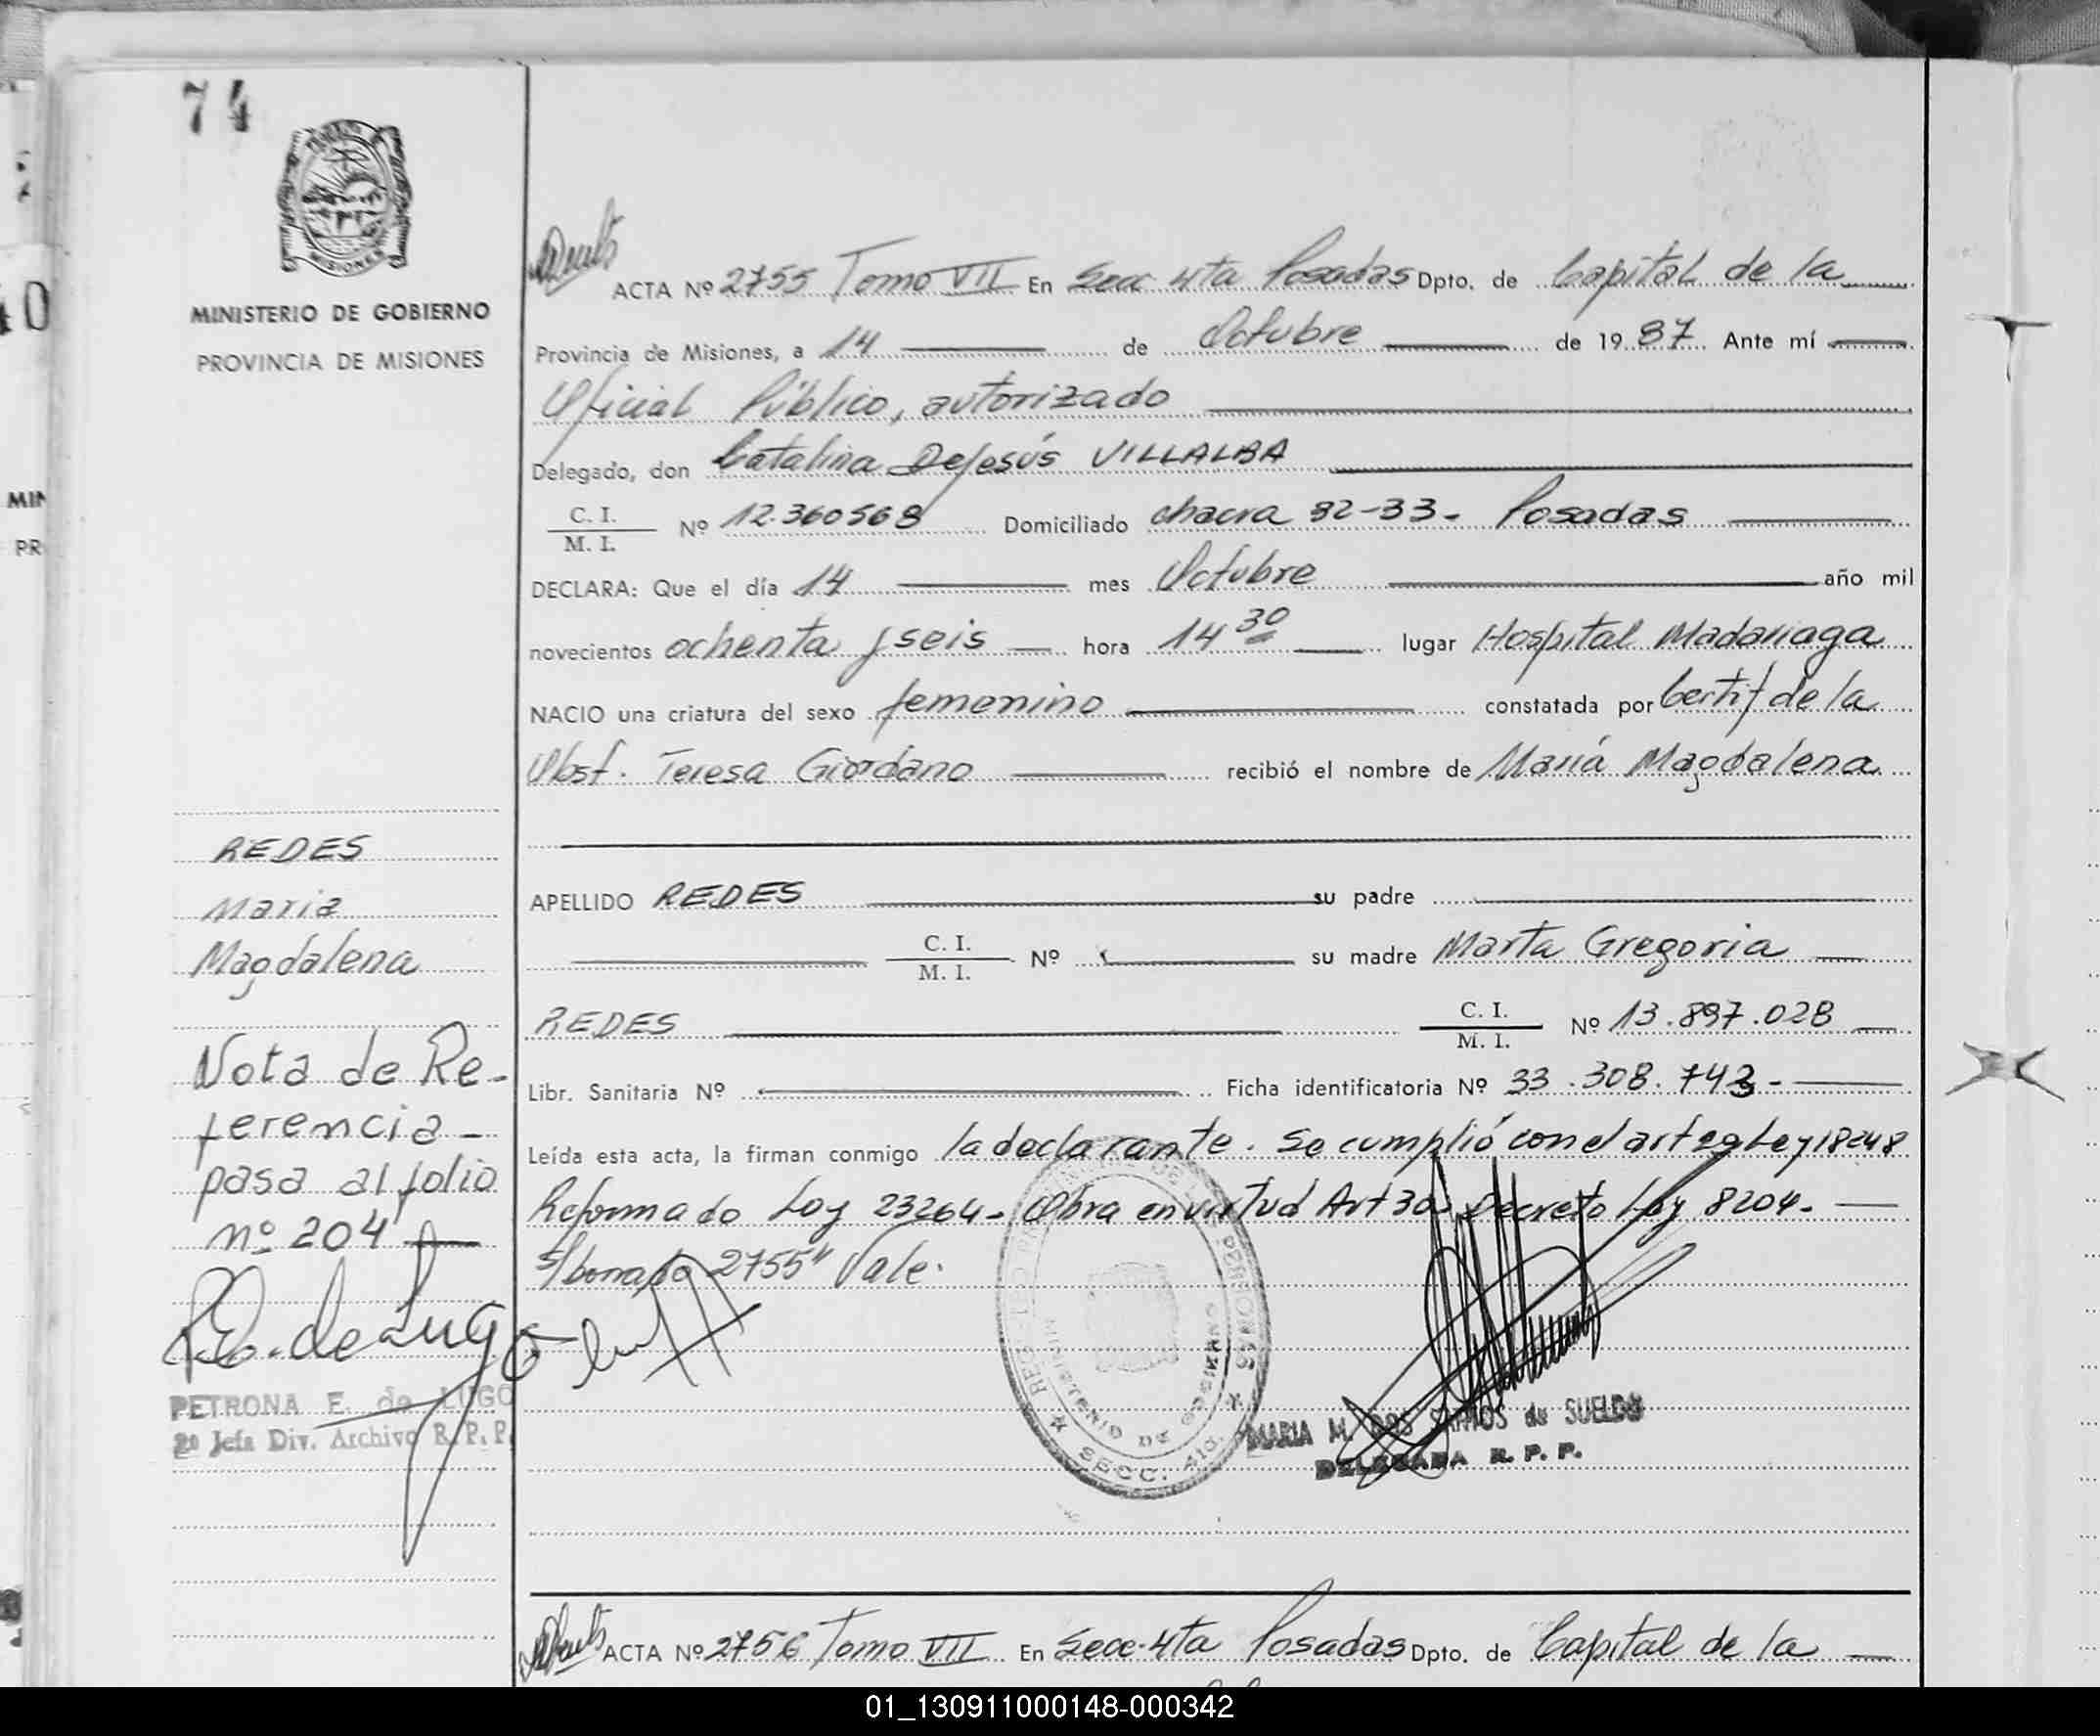 74
MISIONES
MINISTERIO DE GOBIERNO
PROVINCIA DE MISIONES
ACTA Nº 2755 Tomo VII En Secc 4ta Posadas Dpto. de Capital de la
Provincia de Misiones, a 14 de Octubre de 1987 Ante mí
Oficial Público, autorizado
Delegado, don Catalina DeJesús VILLALBA
C. I.
M. I. Nº 12.360568 Domiciliado chacra 32-33- Posadas
DECLARA: Que el día 14 mes Octubre año mil
novecientos ochenta y seis hora 14 30 lugar Hospital Madariaga
NACIO una criatura del sexo femenino constatada por Certif de la
Obst. Teresa Giordano recibió el nombre de María Magdalena
APELLIDO REDES su padre
C. I.
M. I. Nº su madre Marta Gregoria
REDES C. I.
M. I. Nº 13.897.028
Libr. Sanitaria Nº Ficha identificatoria Nº 33.308.743-
Leída esta acta, la firman conmigo la declarante. Se cumplió con el art 29 Ley 18248
Reformado Ley 23264- Obra en virtud Art 30 Decreto Ley 8204.
s/borrado 2755" Vale.
REDES
Maria
Magdalena
Nota de Re-
ferencia-
pasa al folio
nº 204
PETRONA E. de LUGO
2ª Jefa Div. Archivo R. P. P.
SECC. 4ta.
MARIA M. DOS SANTOS de SUELDO
DELEGADA R. P. P.
ACTA Nº 2756 Tomo VII En Secc. 4ta Posadas Dpto. de Capital de la
01_130911000148-000342